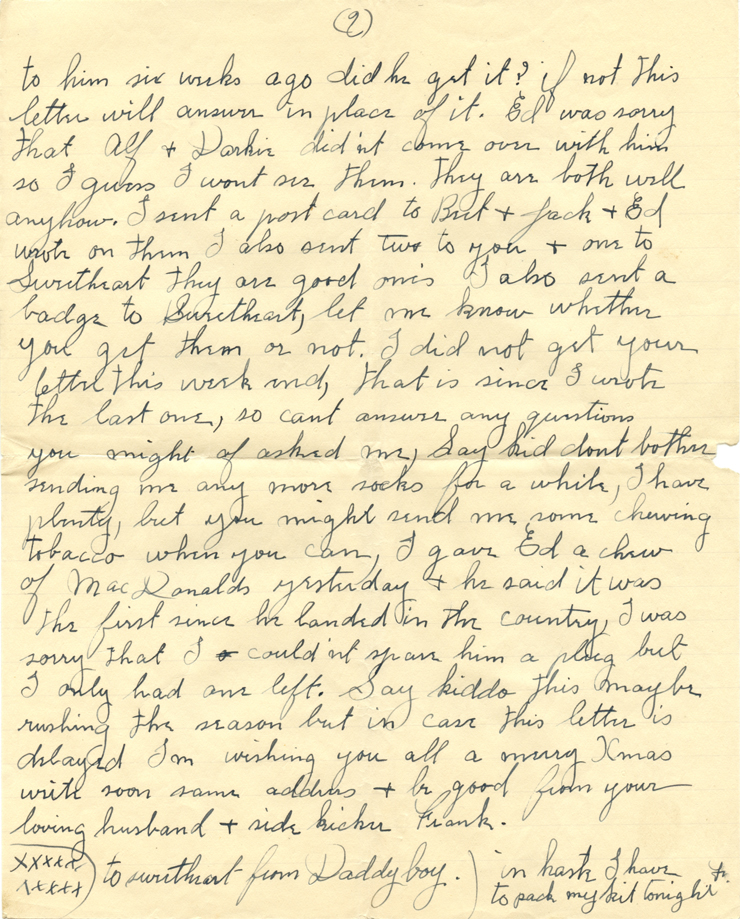 (9)
to him six weeks ago did he get it? if not this
letter will answer in place of it. Ed was sorry
that Alf + Darkie did'nt come over with him
so I guess I wont see them. they are both well
anyhow. I sent a post card to Bert + Jack + Ed
wrote on them I also sent two to you + one to
Sweetheart they are good ones I also sent a
badge to Sweetheart, let me know whether
you get them or not. I did not get your
letter this week end, that is since I wrote
the last one, so cant answer any questions
you might of asked me, Say kid dont bother
sending me any more socks for a while, I have
plenty, but you might send me some chewing
tobacco when you can, I gave Ed a chew
of MacDonalds yesterday + he said it was
the first since he landed in the country, I was
sorry that I could'nt spare him a plug but
I only had one left. Say kiddo this maybe
rushing the season but in case this letter is
delayed I'm wishing you all a merry Xmas
write soon same address + be good from your
loving husband + side kicker Frank.
xxxxx
xxxxx) to sweetheart from Daddy boy.) in haste I have
to pack my kit tonight